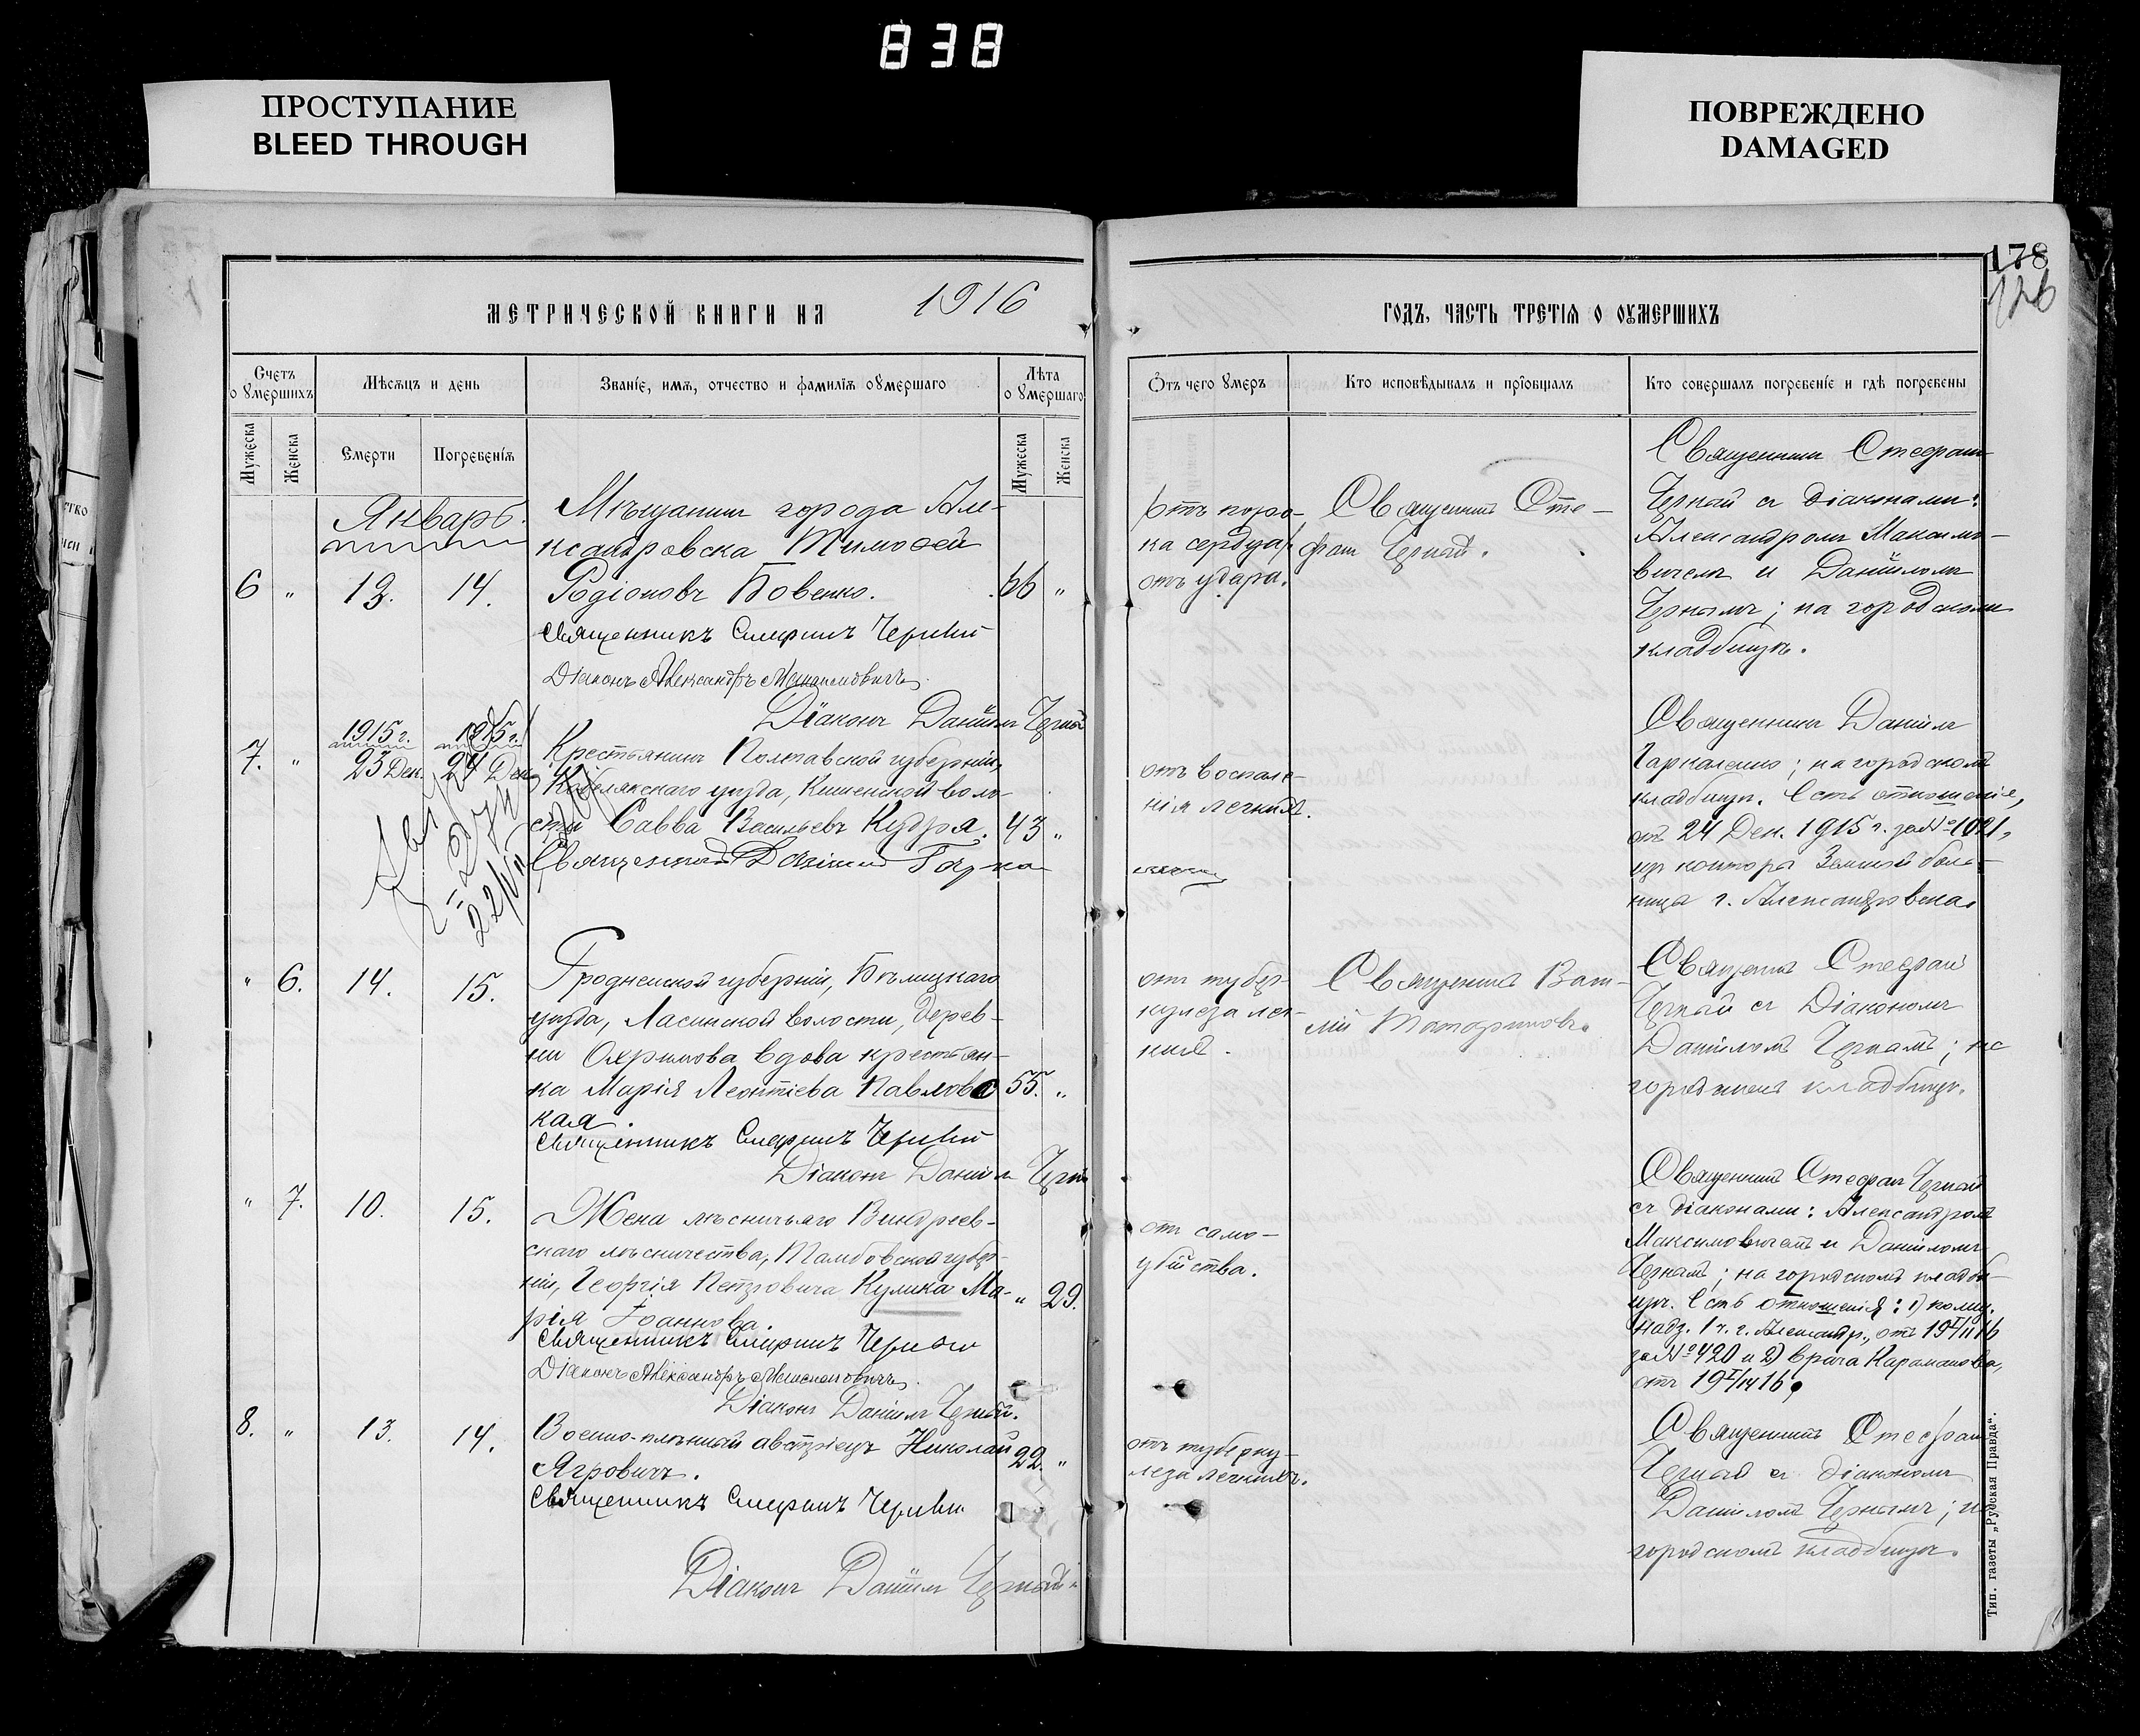 838
ПРОСТУПАНИЕ
BLEED THROUGH
ПОВРЕЖДЕНО
DAMAGED
178
126
МЕТРИЧЕСКОЙ КНИГИ НА 1916
ГОДЪ, ЧАСТЬ ТРЕТІѦ О ОУМЕРШИХЪ
Счетъ о Ꙋмершихъ
Мѣсѧцъ и день
Званіе, имѧ, отчество и фамиліѧ оумершаго
Лѣта оꙊмершаго
Ѿтъ чего Ꙋмеръ
Кто исповѣдывалъ и прїобщалъ
Кто совершалъ погребеніе и гдѣ погребены
Мужеска
Женска
Смерти
Погребеніѧ
Мужеска
Женска
Январь.
6 " 13. 14.
Мѣщанинъ города Але-
ксандровска Тимоѳей
Родіоновъ Бовенко. 66 "
Священникъ Стефанъ Черный
Діаконъ Александръ Максимовичъ
Діаконъ Даніилъ Черный
(отъ поро-
ка сердца)
отъ удара.
Священникъ Сте-
фанъ Черный.
Священникъ Стефанъ
Черный съ діаконами:
Александромъ Максимо-
вичемъ и Даніиломъ
Чернымъ; на городскомъ
кладбищѣ.
7. " 1915 г. 23 Дек. 1915 г. 24 Дек.
Крестьянинъ Полтавской губерніи,
Кобелякскаго уѣзда, Кишенской воло-
сти Савва Васильевъ Кудря. 43 "
Священникъ Даніилъ
отъ воспале-
нія легкихъ.
Священникъ Даніилъ
на городскомъ
кладбищѣ. Есть отношеніе,
отъ 24 Дек. 1915 г. за № 1021,
изъ конторы Земской боль-
ницы г. Александровска.
" 6. 14. 15.
Гродненской губерніи, Бѣльскаго
уѣзда, Ласинской волости, дерев-
ни Охримова вдова крестьян-
ка Марія Леонтіева Павловс 55. "
кая.
Священникъ Стефанъ Черный
Діаконъ Даніилъ Черный
отъ тубер-
кулеза лег-
кихъ.
Священникъ Васи-
лій Татариновъ.
Священникъ Стефанъ
Черный съ Діакономъ
Даніиломъ Чернымъ; на
городскомъ кладбищѣ.
" 7. 10. 15.
Жена лѣсничьяго Виндреев-
скаго лѣсничества, Тамбовской губер-
ніи, Георгія Петровича Кулика Ма- " 29.
рія Іоаннова.
Священникъ Стефанъ Черный
Діаконъ Александръ Максимовичъ
Діаконъ Даніилъ Черный.
отъ само-
убійства.
Священникъ Стефанъ Черный
съ діаконами: Александромъ
Максимовичемъ и Даніиломъ
Чернымъ; на городскомъ кладби-
щѣ. Есть отношенія: 1)
надз. 1 ч. г. Александр., отъ
за № 420 и 2) врача Караманова,
8. " 13. 14.
Военно-плѣнный австріецъ Николай 22. "
Ягровичъ.
Священникъ Стефанъ Черный
Діаконъ Даніилъ Черный
отъ туберку-
леза легкихъ.
Священникъ Стефанъ
Черный съ діакономъ
Даніиломъ Чернымъ; на
городскомъ кладбищѣ.
Тип. газеты „Русская Правда“.